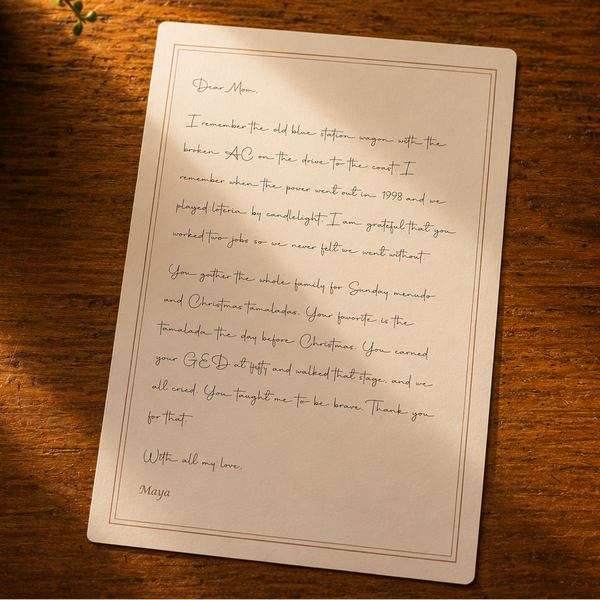 Dear Mom,
I remember the old blue station wagon with the
broken AC on the drive to the coast I
remember when the power went out in 1998 and we
played loteria by candlelight I am grateful that you
worked two jobs so we never felt we went without.
You gather the whole family for Sunday menudo
and Christmas tamaladas. Your favorite is the
tamalada the day before Christmas. You earned
your GED at fifty and walked that stage, and we
all cried. You taught me to be brave. Thank you
for that.
With all my love,
Maya